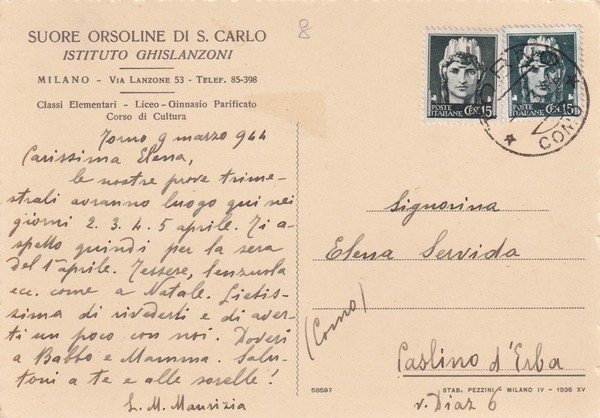 SUORE ORSOLINE DI S. CARLO
ISTITUTO GHISLANZONI
MILANO - VIA LANZONE 53 - TELEF. 85-398
Classi Elementari - Liceo-Ginnasio Parificato
Corso di Cultura
8
9 marzo 944
Carissima Elena,
le nostre prove trime-
strali avranno luogo qui nei
giorni 2. 3. 4. 5 aprile. Ti a-
spetto quindi per la sera
del 1° aprile. Tessere, lenzuola
ecc. come a Natale. Lietis-
sima di rivederti e di aver-
ti un poco con noi. Doveri
a Babbo e Mamma. Salu-
toni a te e alle sorelle!
L. M. Maurizia
POSTE ITALIANE CENT. 15
POSTE ITALIANE CENT. 15
COMO
Signorina
Elena Servida
(Como)
Caslino d'Erba
v. Diaz 6
58597
STAB. PEZZINI MILANO IV - 1936 XV